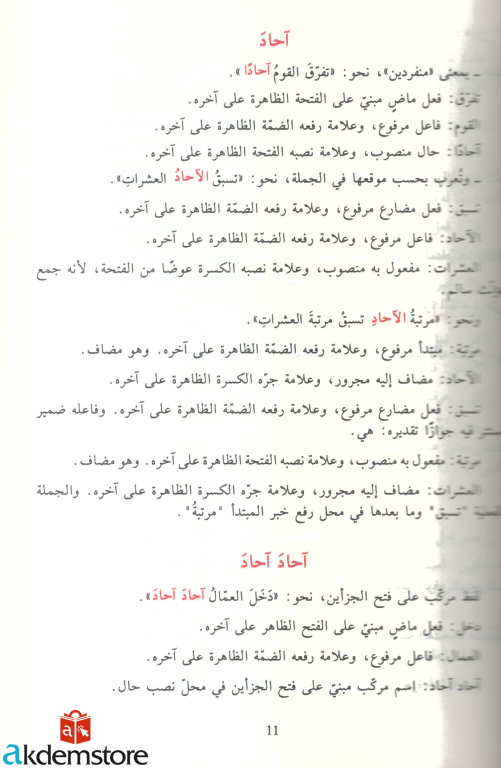 آحادَ
ـ بمعنى «منفردين»، نحو: «تفرّقَ القومُ آحادًا».
تفرّق: فعل ماضٍ مبنيّ على الفتحة الظاهرة على آخره.
القوم: فاعل مرفوع، وعلامة رفعه الضمّة الظاهرة على آخره.
آحادًا: حال منصوب، وعلامة نصبه الفتحة الظاهرة على آخره.
ـ وتُعرب بحسب موقعها في الجملة، نحو: «تسبقُ الآحادُ العشراتِ».
تسبق: فعل مضارع مرفوع، وعلامة رفعه الضمّة الظاهرة على آخره.
الآحاد: فاعل مرفوع، وعلامة رفعه الضمّة الظاهرة على آخره.
العشرات: مفعول به منصوب، وعلامة نصبه الكسرة عوضًا من الفتحة، لأنه جمع
سالم.
ونحو: «مرتبةُ الآحادِ تسبقُ مرتبةَ العشراتِ».
مرتبة: مبتدأ مرفوع، وعلامة رفعه الضمّة الظاهرة على آخره. وهو مضاف.
الآحاد: مضاف إليه مجرور، وعلامة جرّه الكسرة الظاهرة على آخره.
تسبق: فعل مضارع مرفوع، وعلامة رفعه الضمّة الظاهرة على آخره. وفاعله ضمير
فيه جوازًا تقديره: هي.
مرتبة: مفعول به منصوب، وعلامة نصبه الفتحة الظاهرة على آخره. وهو مضاف.
العشرات: مضاف إليه مجرور، وعلامة جرّه الكسرة الظاهرة على آخره. والجملة
"تسبق" وما بعدها في محل رفع خبر المبتدأ "مرتبةُ".
آحادَ آحادَ
لفظ مركّب على فتح الجزأين، نحو: «دَخَلَ العمّالُ آحادَ آحادَ».
دخل: فعل ماضٍ مبنيّ على الفتح الظاهر على آخره.
العمال: فاعل مرفوع، وعلامة رفعه الضمّة الظاهرة على آخره.
آحاد آحاد: اسم مركّب مبنيّ على فتح الجزأين في محلّ نصب حال.
11
akdemstore